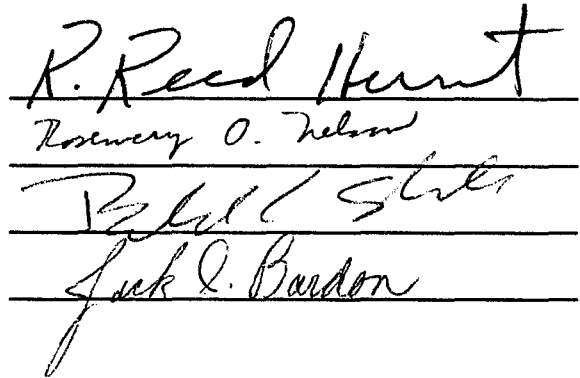 R. Reed Hunt
Rosemery O. Nelson
Jack I. Bardon